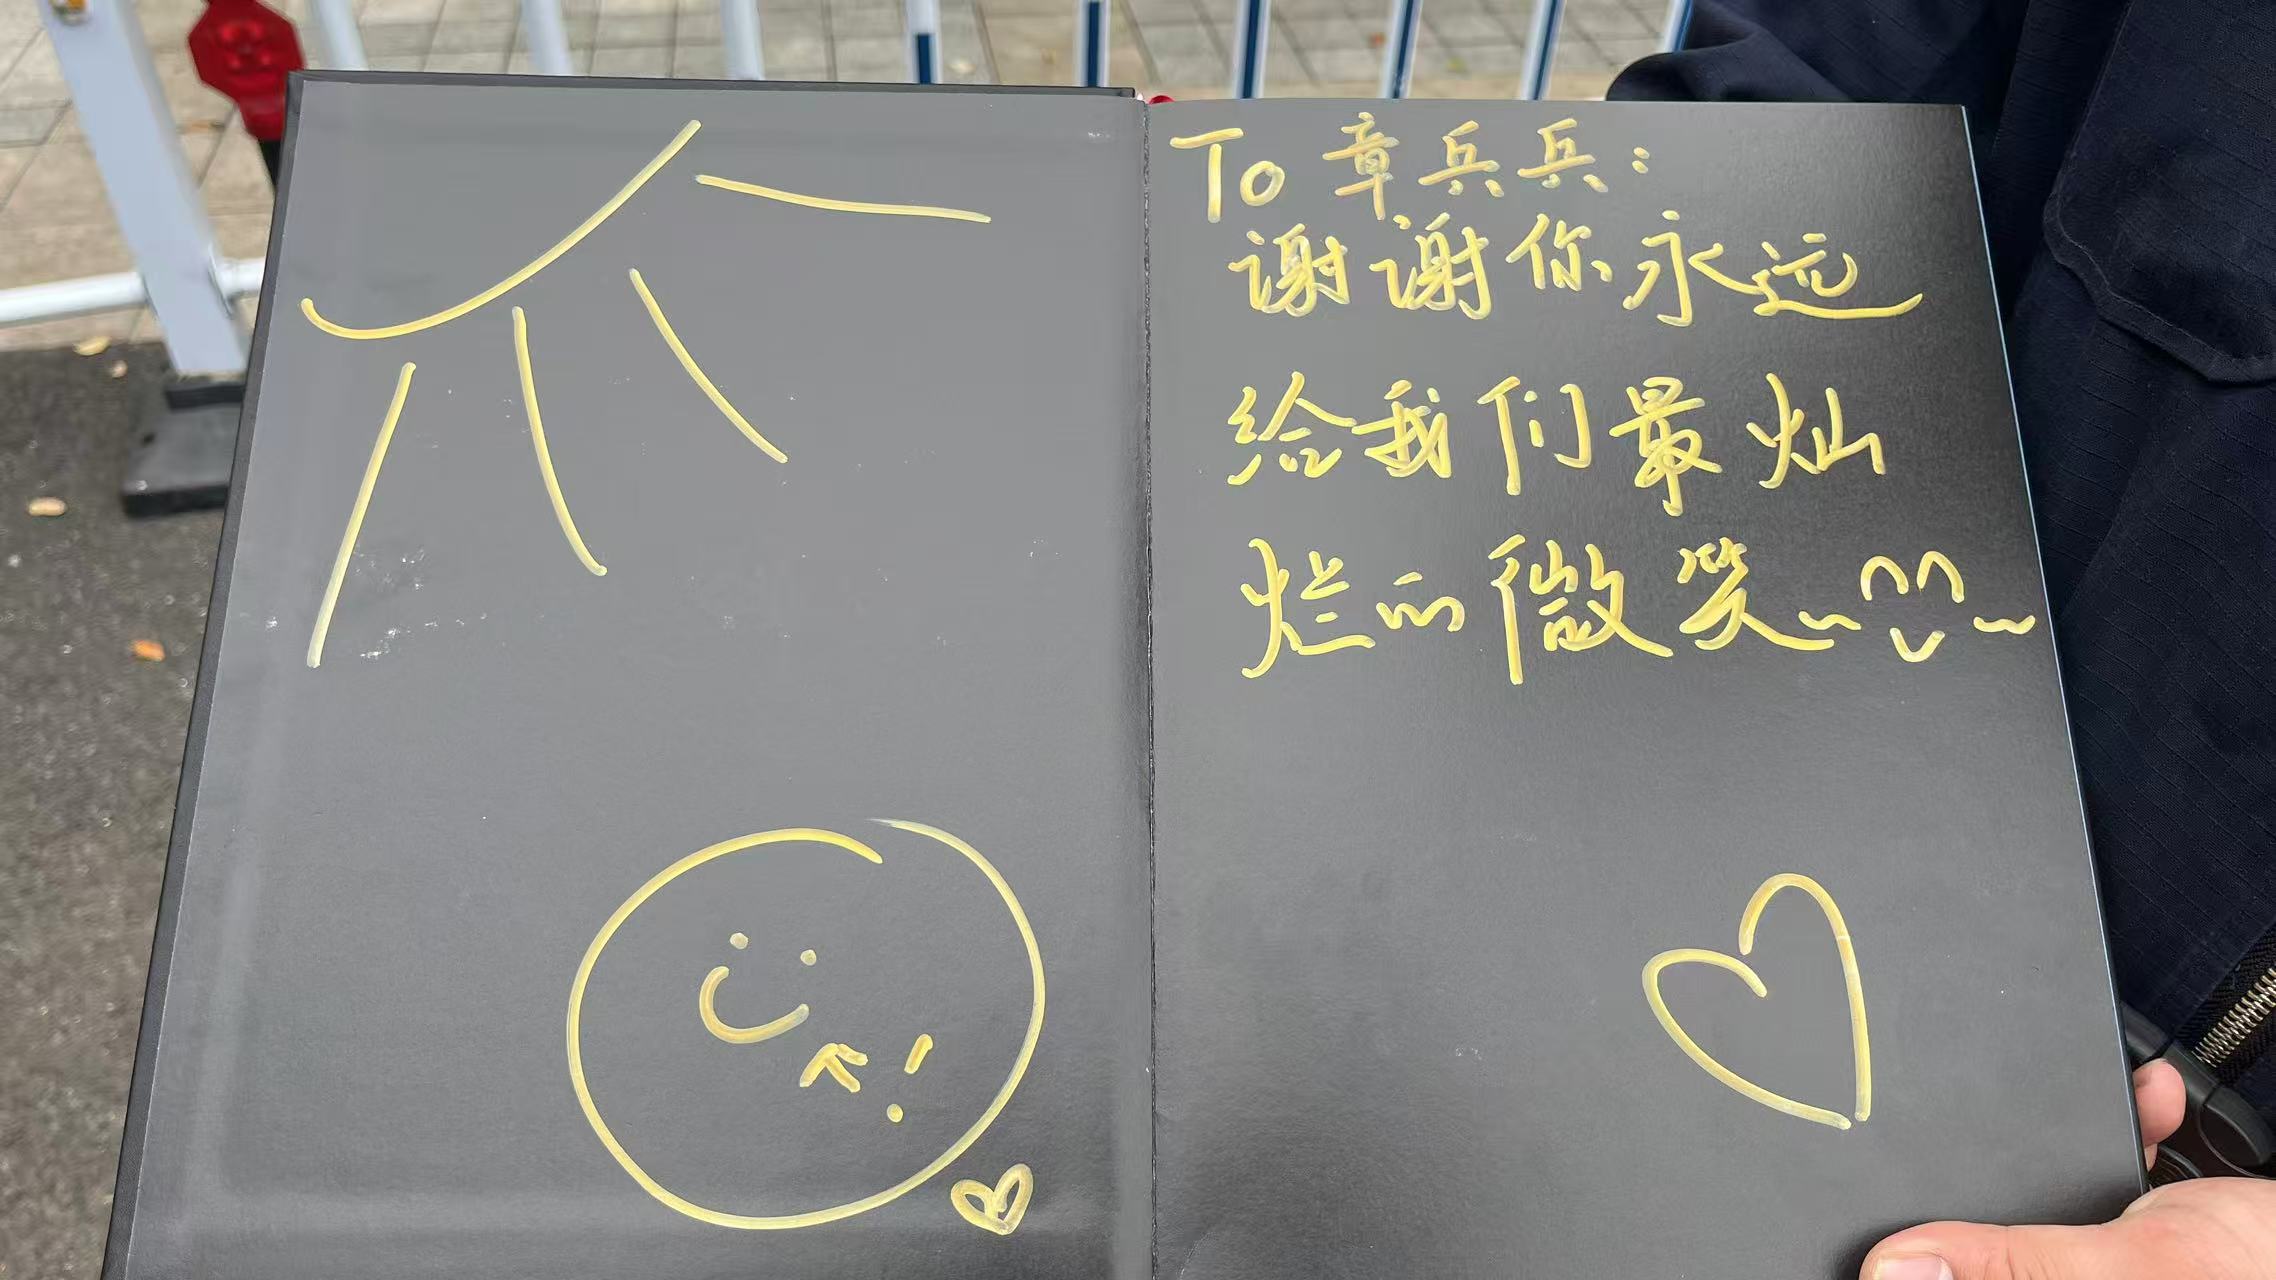 To 章兵兵:
谢谢你永远
给我们最灿
烂的微笑~~